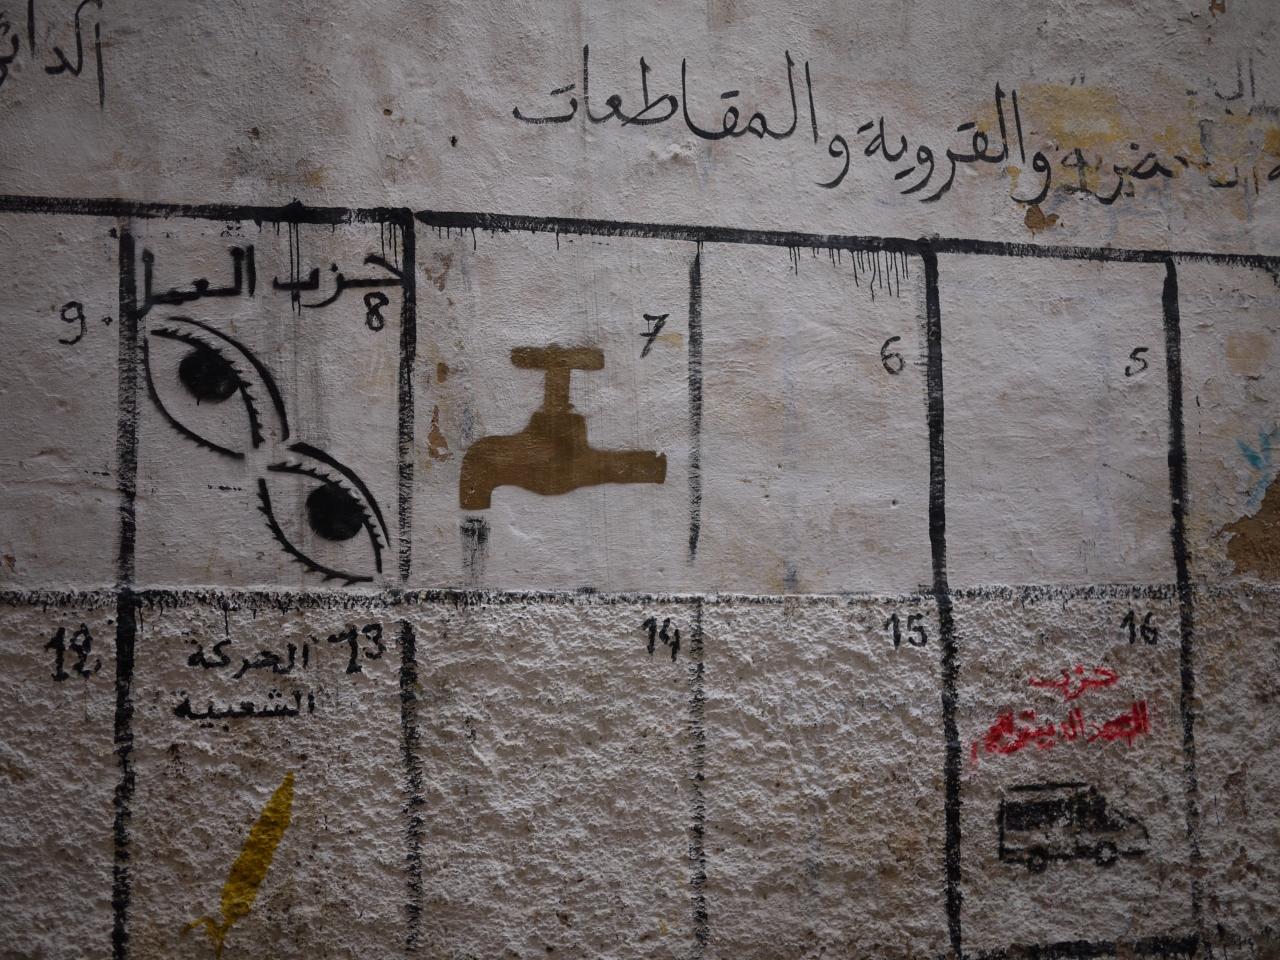 والقروية والمقاطعات
5
6
7
8
حزب العمل
9
16
حزب
15
14
13
الحركة
الشعبية
12